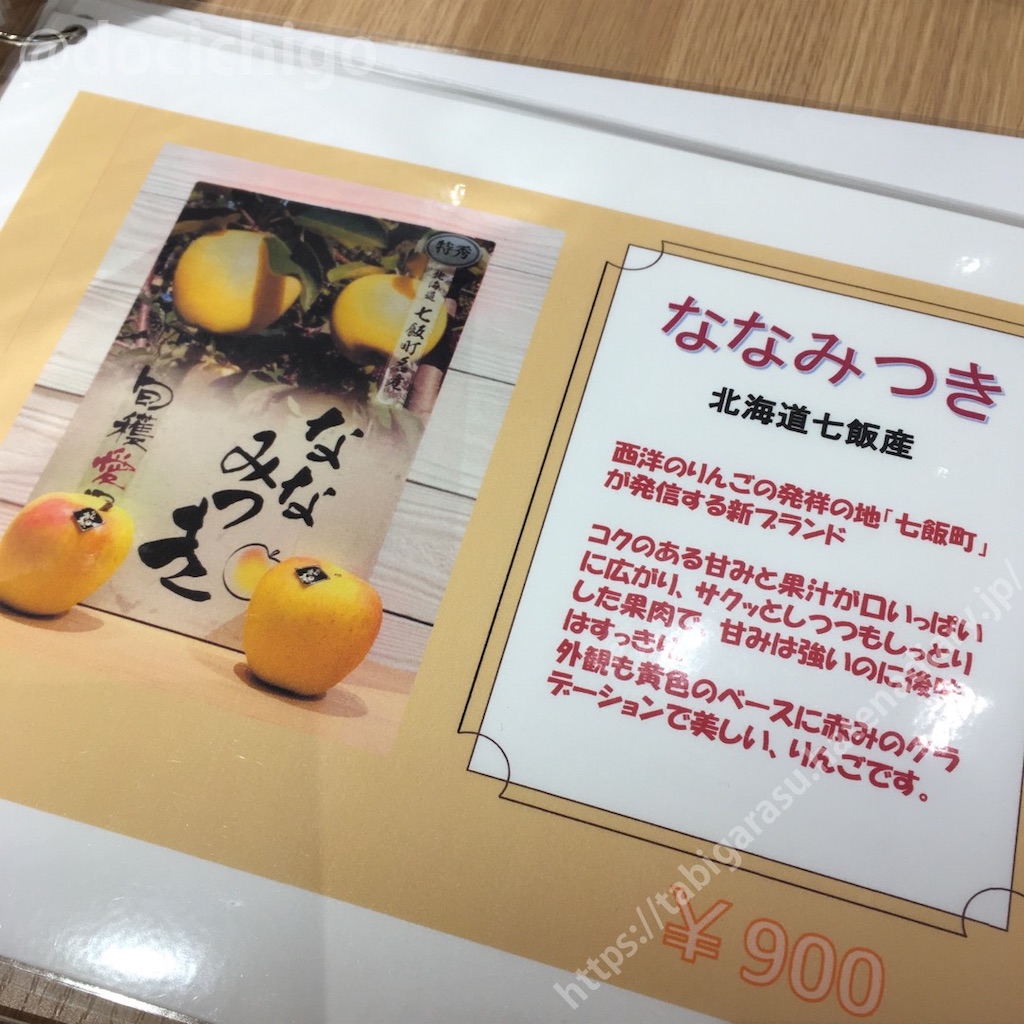 @docichigo
特秀
北海道 七飯町名産
旬穫愛
ななみつき
ななみつき
北海道七飯産
西洋のりんごの発祥の地「七飯町」
が発信する新ブランド
コクのある甘みと果汁が口いっぱい
に広がり、サクッとしつつもしっとり
した果肉で、甘みは強いのに後味
はすっきり。
外観も黄色のベースに赤みのグラ
デーションで美しい、りんごです。
¥900